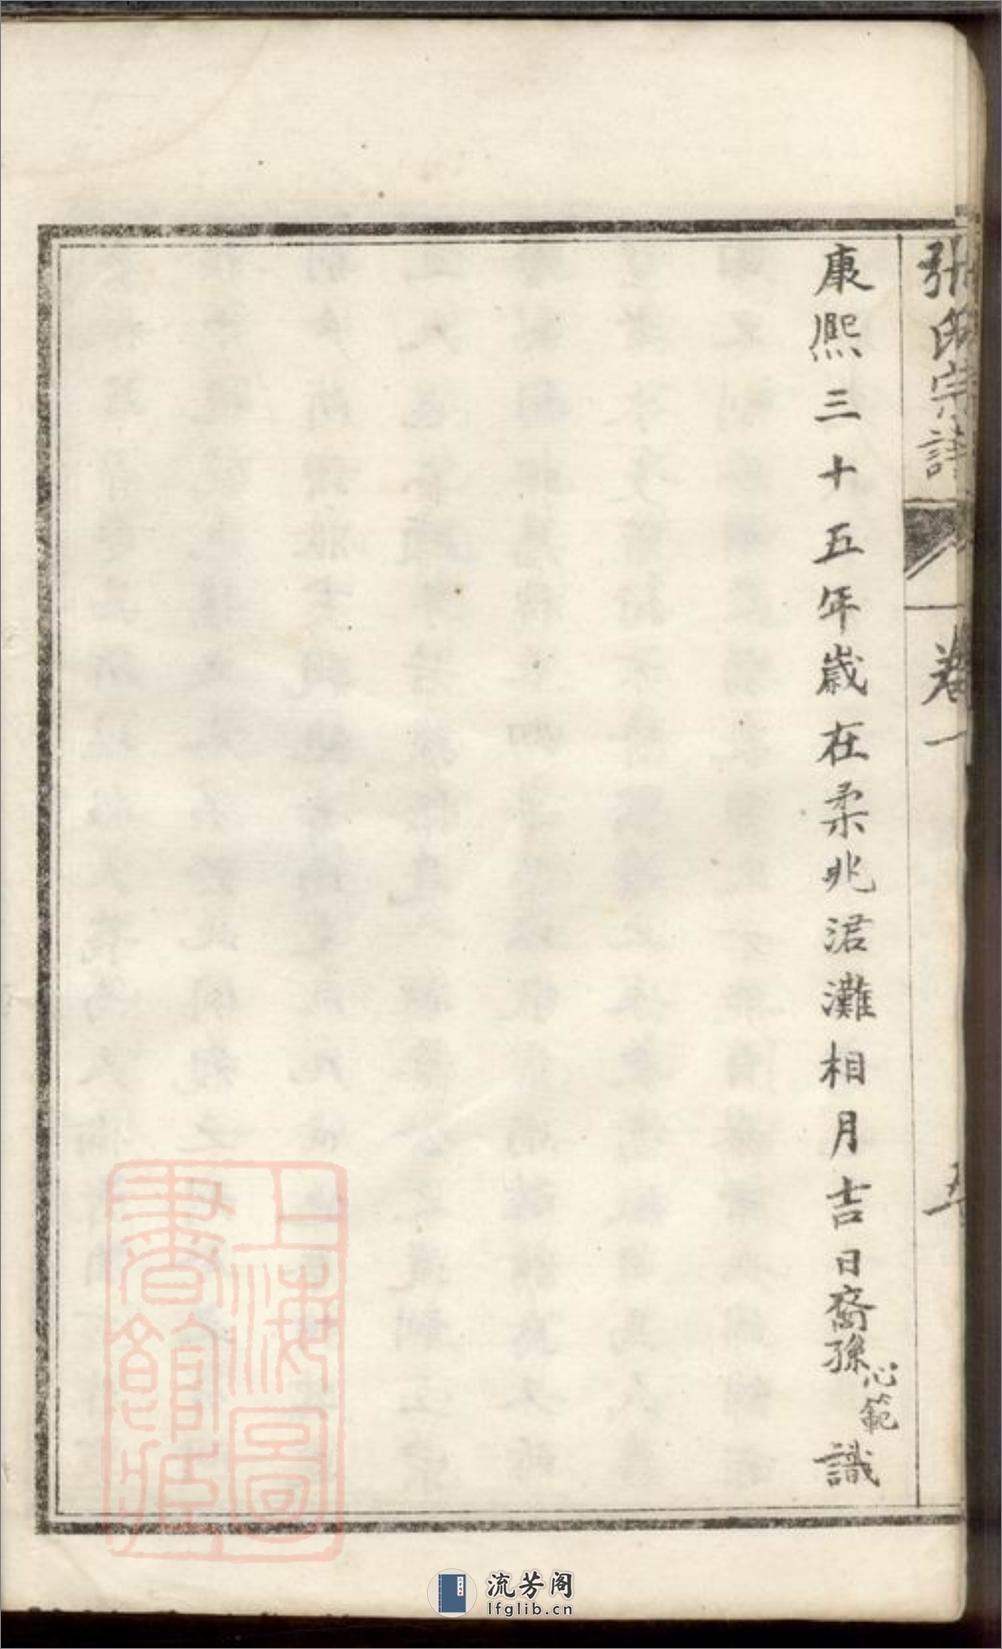 張氏宗譜
卷一
五
康熙三十五年歲在柔兆涒灘相月吉日裔孫心範識
上海圖
書館藏
流芳阁
lfglib.cn